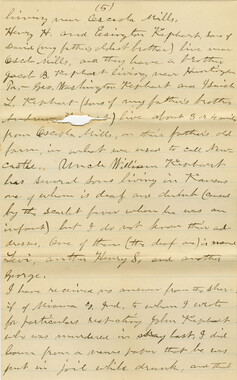 (5)
living near Osceola Mills.
Henry H. and Lexington Kephart, sons of
David (my father's oldest brother) live near
Osceola Mills, and they have a brother
Jacob B. Kephart living near Huntingdon
Pa. Geo. Washington Kephart and Isaiah
L. Kephart (sons of my father's brother
live about 3 or 4 miles
from Osceola Mills, on their father's old
farm, in what we used to call New
Castle. Uncle William Kephart
has several sons living in Kansas
one of whom is deaf and dumb (caused
by the scarlet fever when he was an
infant) but I do not know their ad-
dresses. One of them (the deaf one) is named
Levi, another Henry S, and another
George.
I have received no answer from the sher-
iff of Miami Co, Ind, to whom I wrote
for particulars respecting John Kephart
who was murdered in May last, I did
learn from a newspaper that he was
put in jail while drunk, and that